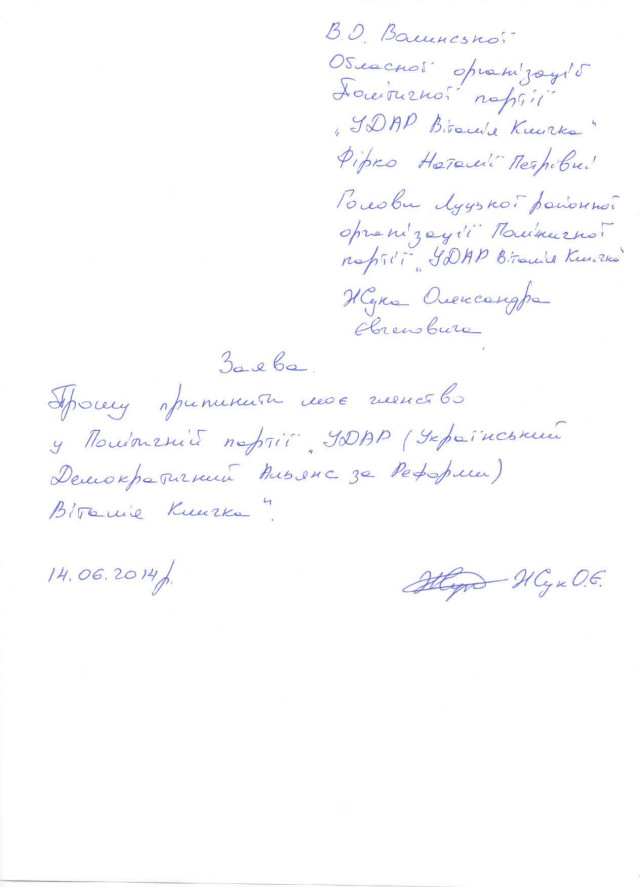 В.О. Волинської
Обласної організації
Політичної партії
„УДАР Віталія Кличка"
Фірко Наталії Петрівні
Голови Луцької районної
організації Політичної
партії „УДАР Віталія Кличка"
Жука Олександра
Євгеновича
Заява.
Прошу припинити моє членство
у Політичній партії „УДАР (Український
Демократичний Альянс за Реформи)
Віталія Кличка".
14.06.2014р. Жук О.Є.